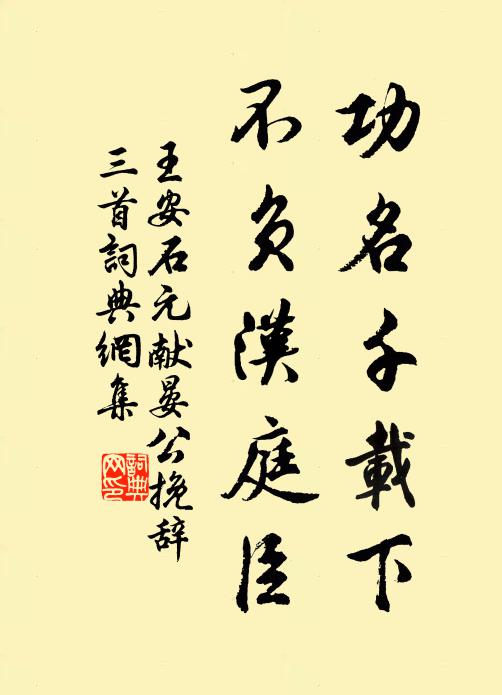 功名千載下
不負漢庭臣
王安石元献晏公挽辞
三首詞典網集
詞典
网印